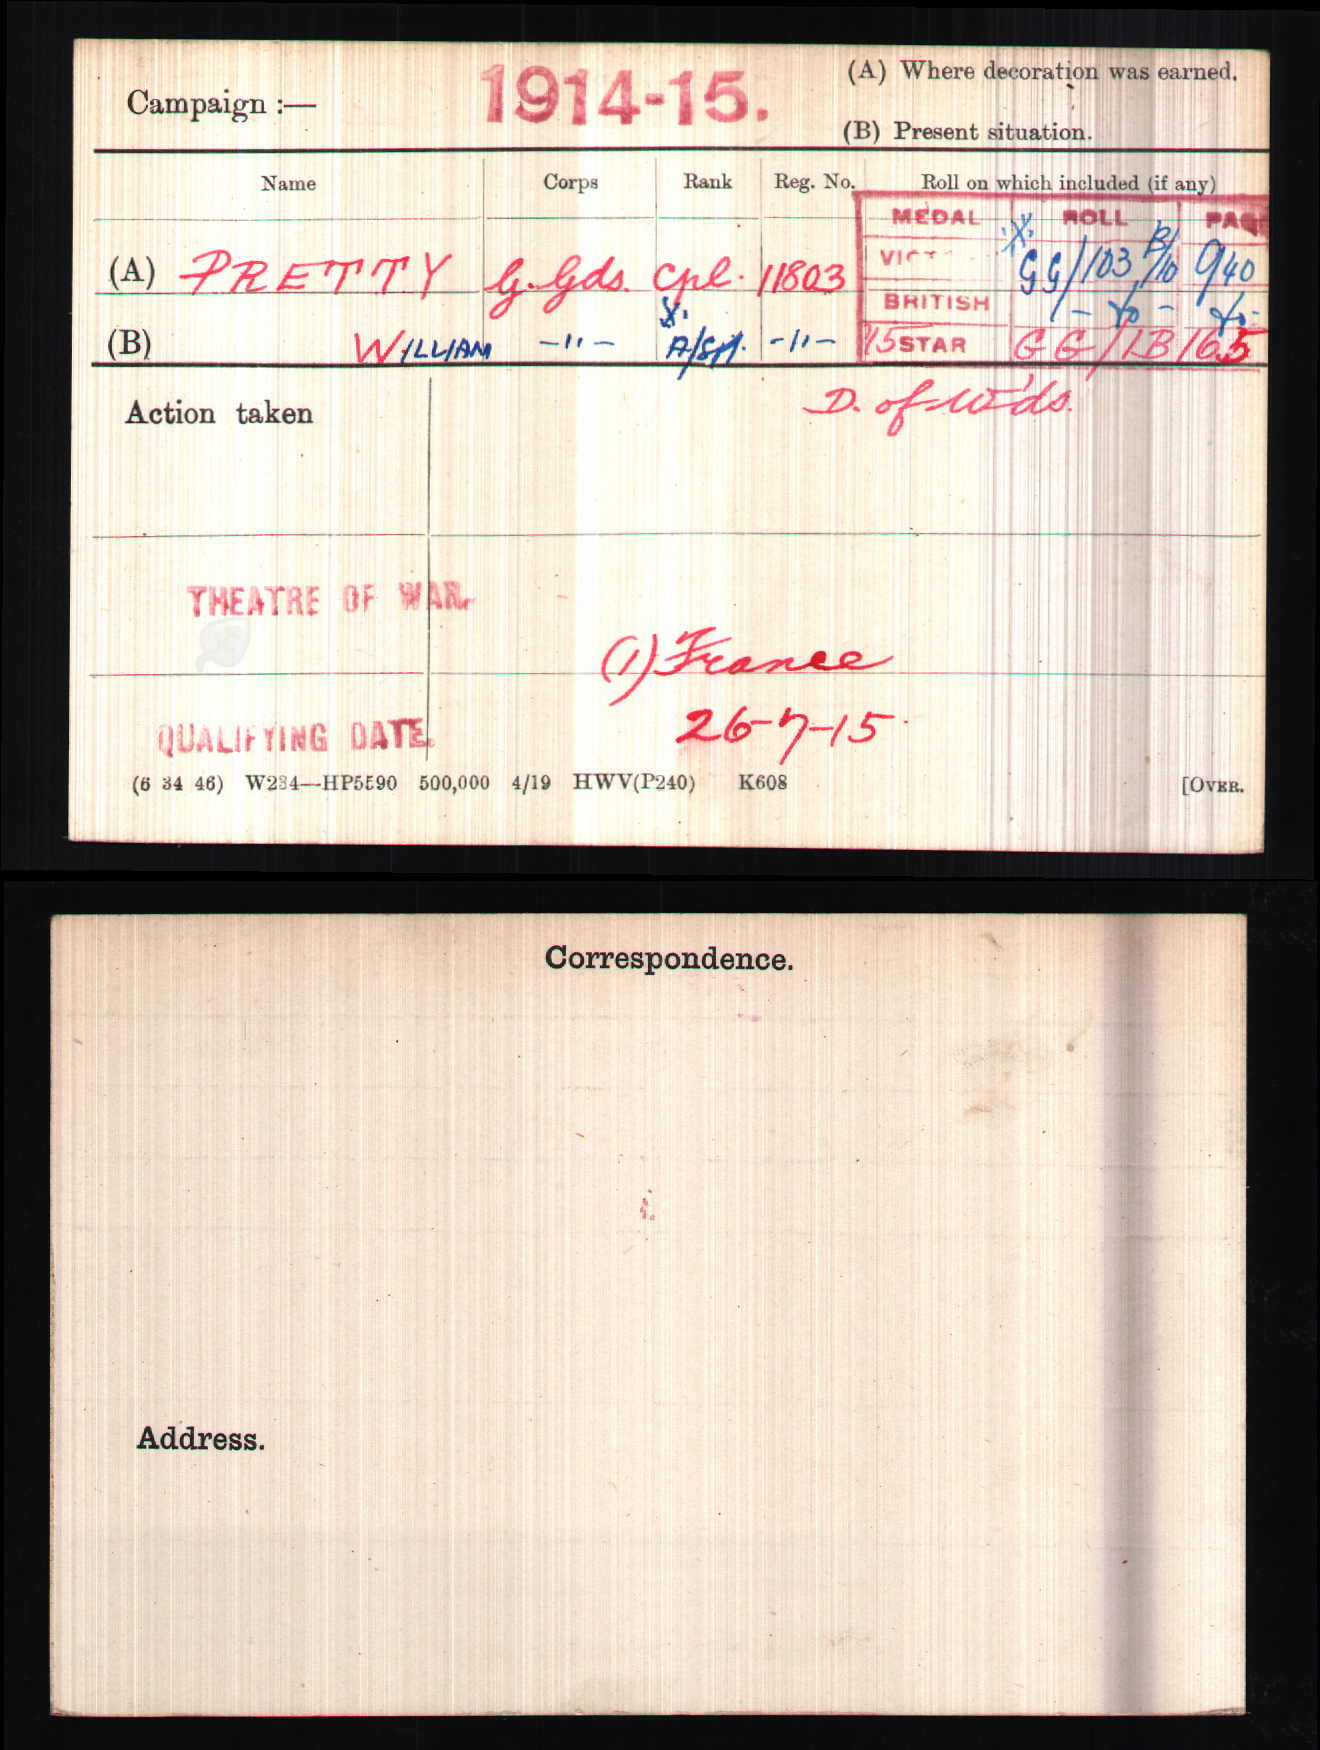 Campaign :— 1914-15. (A) Where decoration was earned.
(B) Present situation.
Name Corps Rank Reg. No. Roll on which included (if any)
MEDAL ROLL PAGE
(A) PRETTY G. Gds. Cpl. 11803 VICT X GG/103 B/10 940
BRITISH -do- do-
(B) WILLIAM -"- X. A/SM. -"- 15 STAR GG/1B 165
Action taken D. of W'ds.
THEATRE OF WAR.
(1) France
QUALIFYING DATE. 26-7-15
(6 34 46) W234—HP5590 500,000 4/19 HWV(P240) K608 [OVER.
Correspondence.
Address.